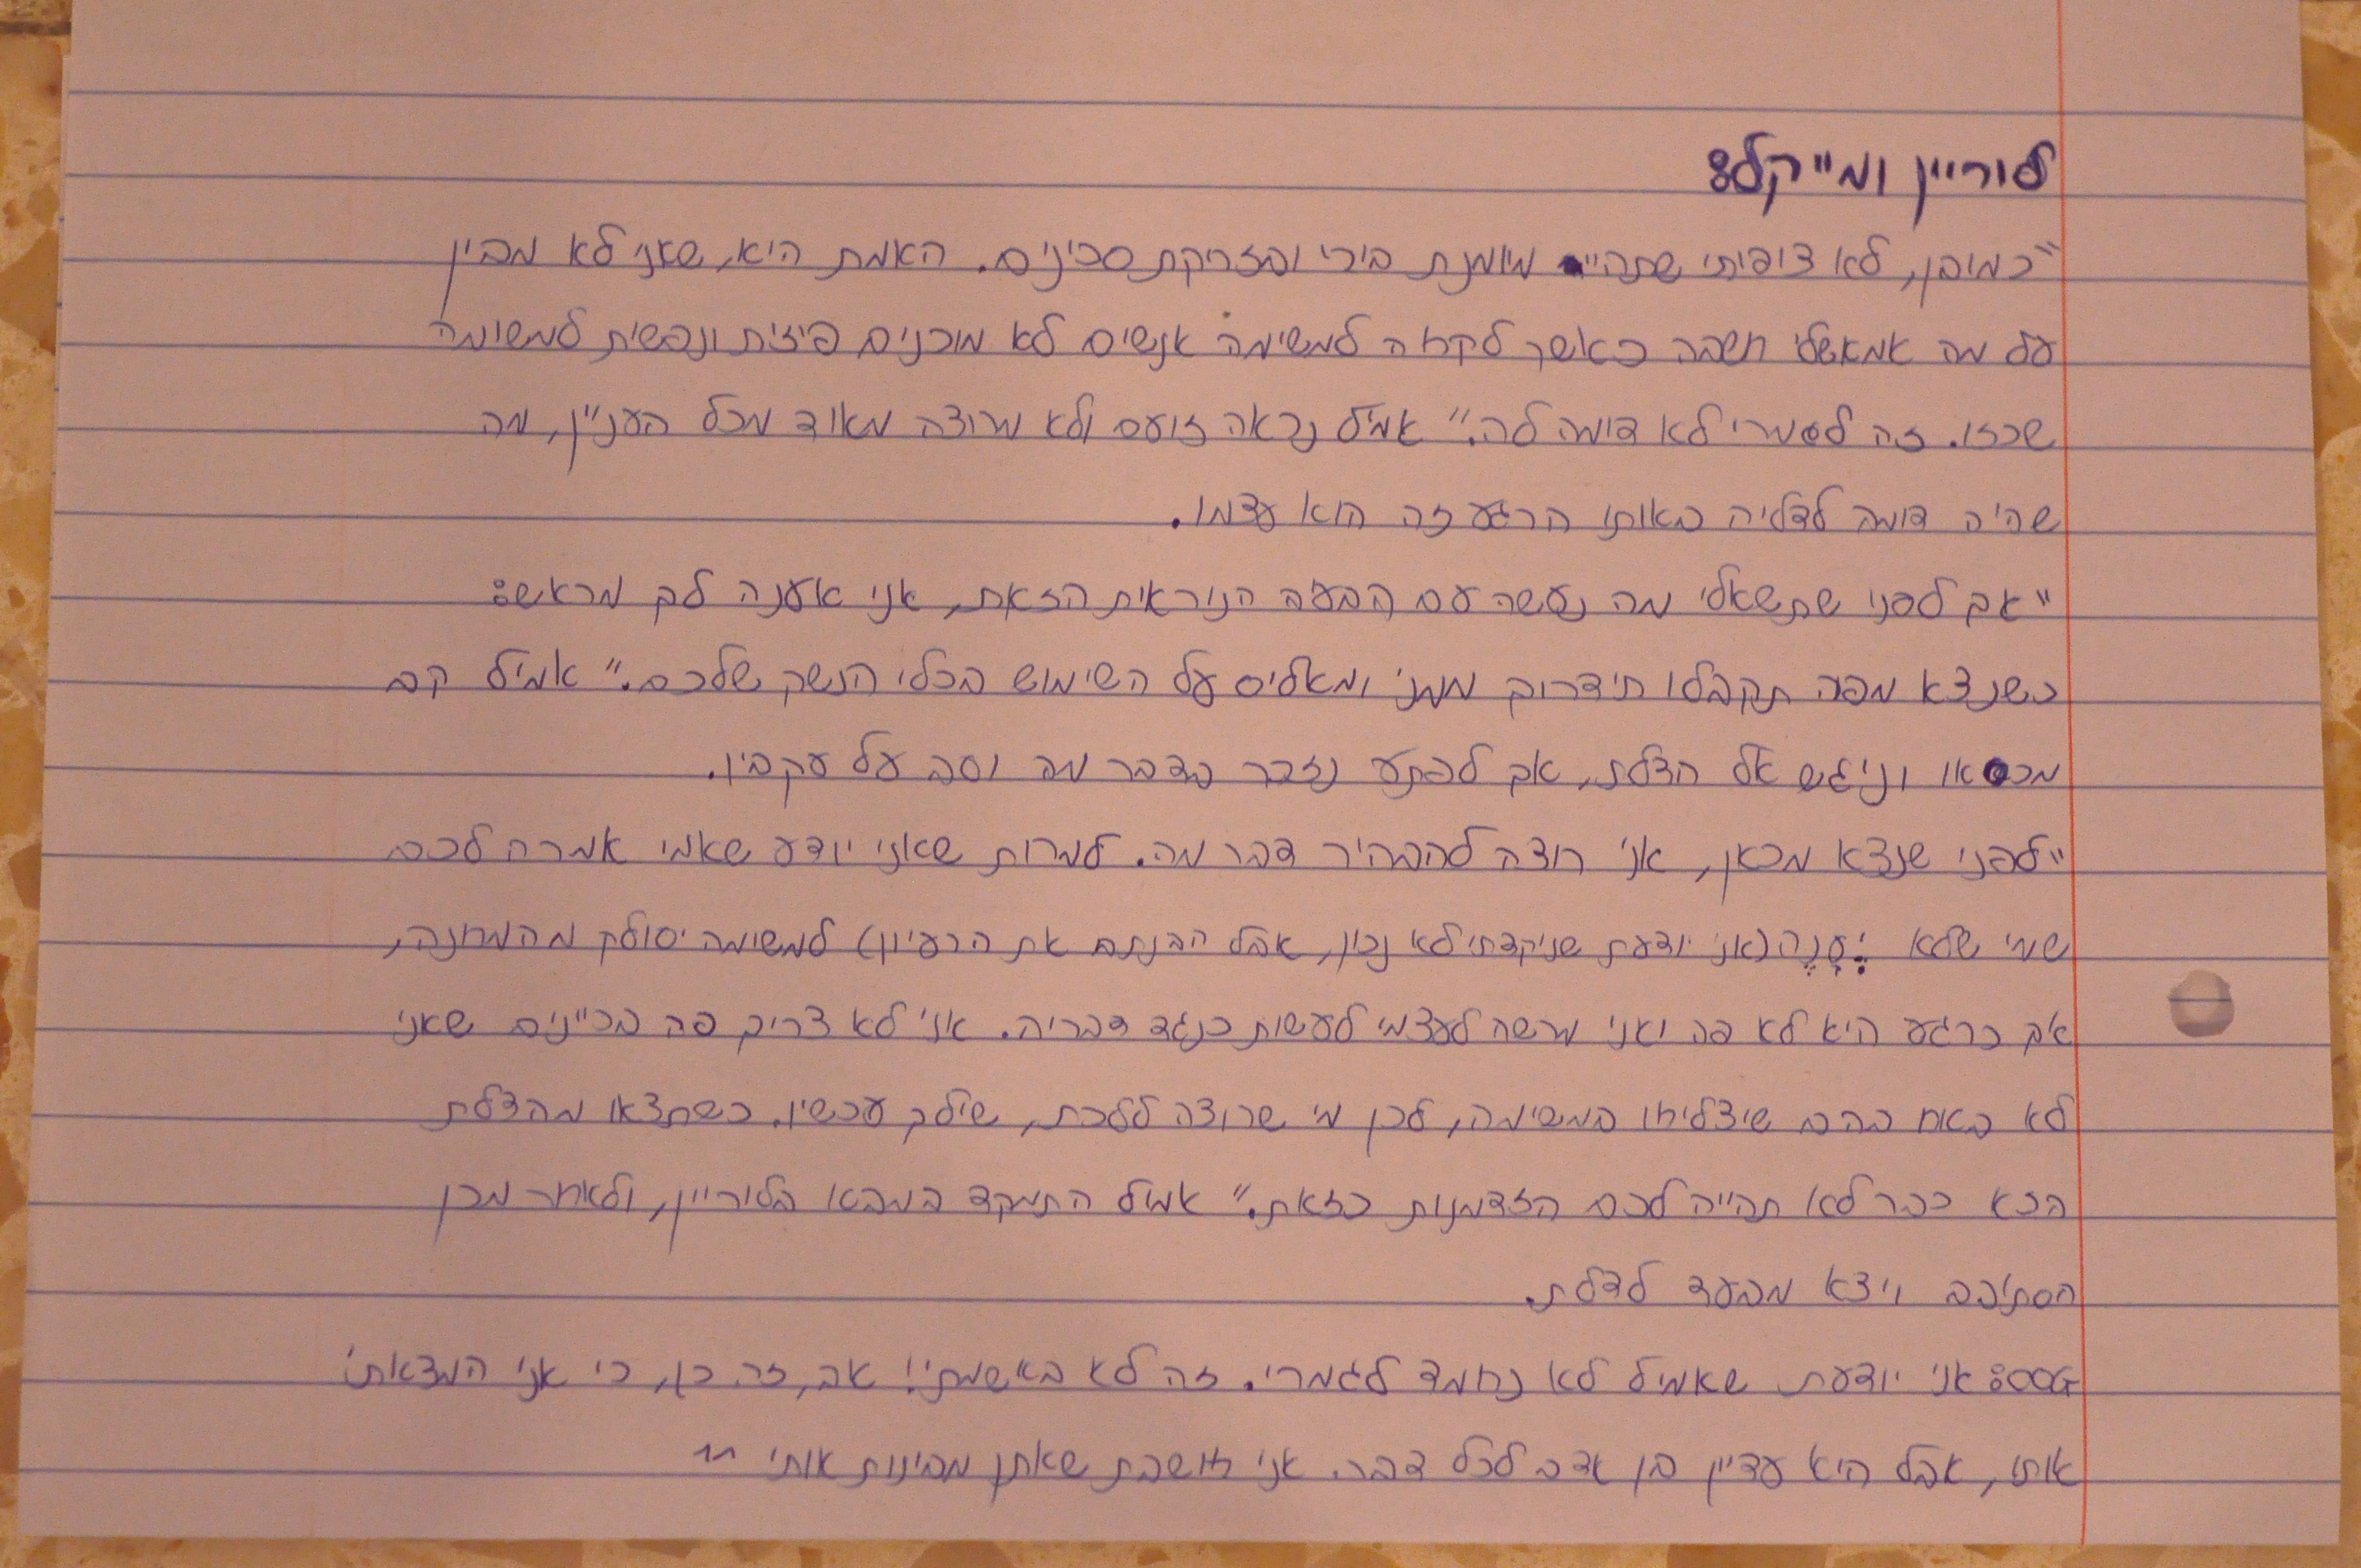 לוריין ומייקל:
"כמובן, לא ציפיתי שתהיי מיומנת בירי ובזריקת סכינים. האמת היא, שאני לא מבין
על מה אמאשלי חשבה כאשר לקחה למשימה אנשים לא מוכנים פיזית ונפשית למשימה
שכזו. זה לגמרי לא דומה לה." אמיל נראה זועם ולא מרוצה מאוד מכל העניין, מה
שהיה דומה לדליה באותו הרגע זה הוא עצמו.
"אך לפני שתשאלי מה נעשה עם הבעיה הנוראית הזאת, אני אענה לך מראש:
כשנצא מפה תקבלו תידרוך ממני ומאליס על השימוש בכלי הנשק שלכם." אמיל קם
מכסאו וניגש אל הדלת, אך לפתע נזכר בדבר מה וסב על עקביו.
"לפני שנצא מכאן, אני רוצה להבהיר דבר מה. למרות שאני יודע שאמי אמרה לכם
שמי שלא יֵעָנֶה (אני יודעת שניקדתי לא נכון, אבל הבנתם את הרעיון) למשימה יסולק מהמחנה,
אך כרגע היא לא פה ואני מרשה לעצמי לעשות כנגד דבריה. אני לא צריך פה בכיינים שאני
לא בטוח בהם שיצליחו במשימה, לכן מי שרוצה ללכת, שילך עכשיו. כשתצאו מהדלת
הזא כבר לא תהייה לכם הזדמנות כזאת." אמיל התמקד במבטו בלוריין, ולאחר מכן
הסתובב ויצא מבעד לדלת.
OOG: אני יודעת שאמיל לא נחמד לגמרי. זה לא באשמתי! אב, זה כן, כי אני המצאתי
אותו, אבל היא עדיין בן אדם לכל דבר. אני חושבת שאתן מבינות אותי ^^